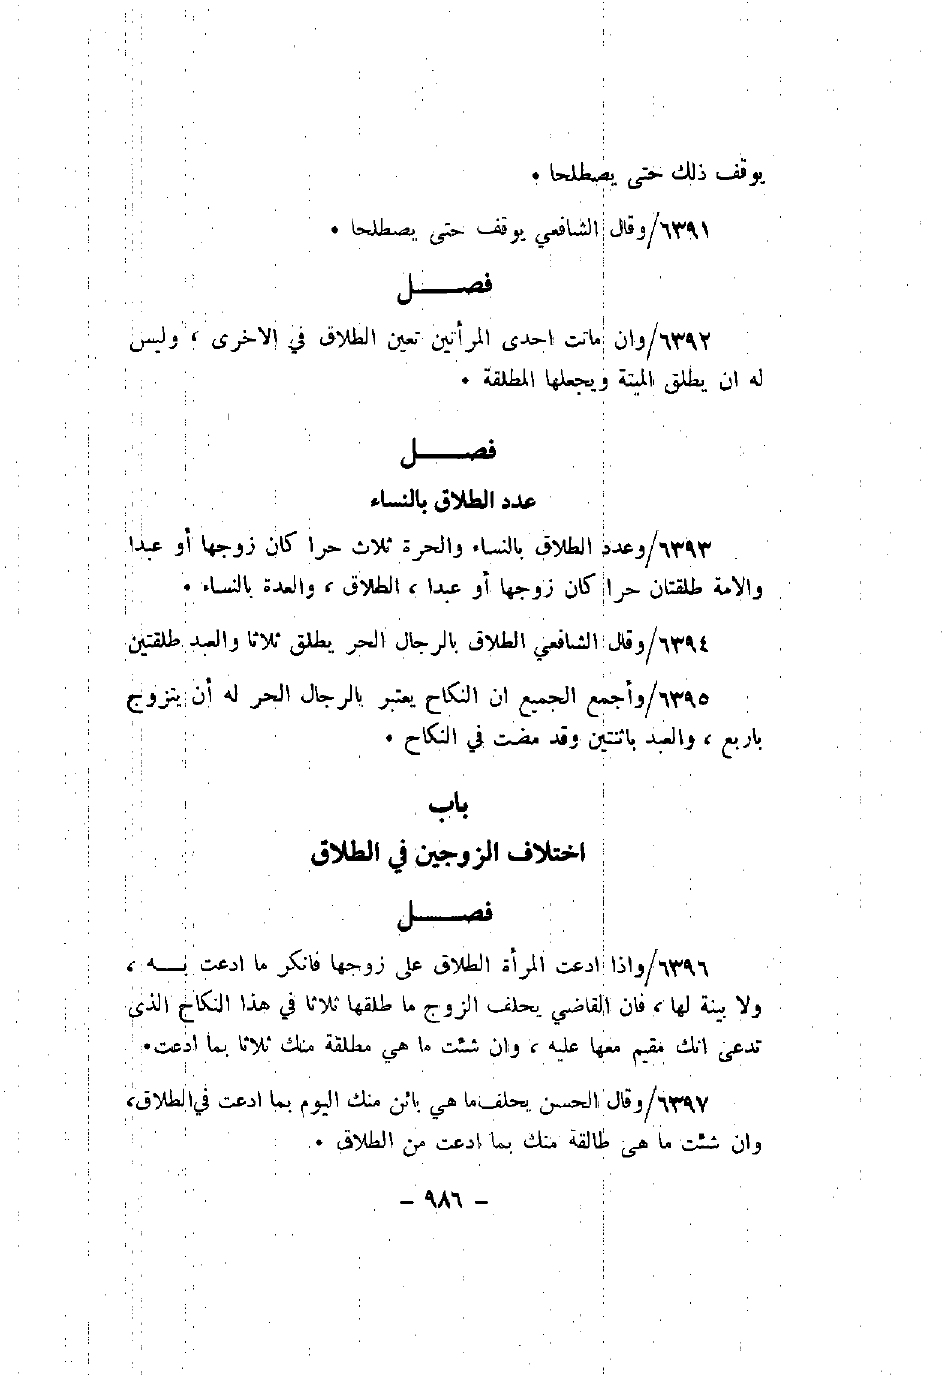 يوقف ذلك حتى يصطلحا •
٦٣٩١/وقال الشافعي يوقف حتى يصطلحا •
فصـــــل
٦٣٩٢/وان ماتت احدى المرأتين تعين الطلاق في الاخرى ، وليس
له ان يطلق الميتة ويجعلها المطلقة •
فصـــــل
عدد الطلاق بالنساء
٦٣٩٣/وعدد الطلاق بالنساء والحرة ثلاث حرا كان زوجها أو عبدا
والامة طلقتان حرا كان زوجها أو عبدا ، الطلاق ، والعدة بالنساء •
٦٣٩٤/وقال الشافعي الطلاق بالرجال الحر يطلق ثلاثا والعبد طلقتين
٦٣٩٥/وأجمع الجميع ان النكاح يعتبر بالرجال الحر له أن يتزوج
باربع ، والعبد باثنتين وقد مضت في النكاح •
باب
اختلاف الزوجين في الطلاق
فصـــــل
٦٣٩٦/واذا ادعت المرأة الطلاق على زوجها فانكر ما ادعت بـــه ،
ولا بينة لها ، فان القاضي يحلف الزوج ما طلقها ثلاثا في هذا النكاح الذى
تدعى انك مقيم معها عليه ، وان شئت ما هي مطلقة منك ثلاثا بما ادعت•
٦٣٩٧/وقال الحسن يحلف ما هي بائن منك اليوم بما ادعت في الطلاق،
وان شئت ما هى طالقة منك بما ادعت من الطلاق •
– ٩٨٦ –